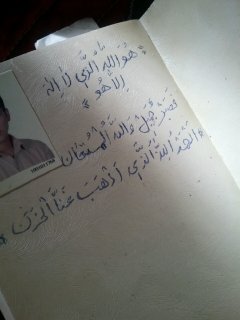 « هُوَ اللهُ الَّذِي لَا إِلَهَ
إِلَّا هُوَ »
فَصَبْرٌ جَمِيلٌ وَاللهُ الْمُسْتَعَانُ
« الْحَمْدُ لِلهِ الَّذِي أَذْهَبَ عَنَّا الْحَزَنَ »